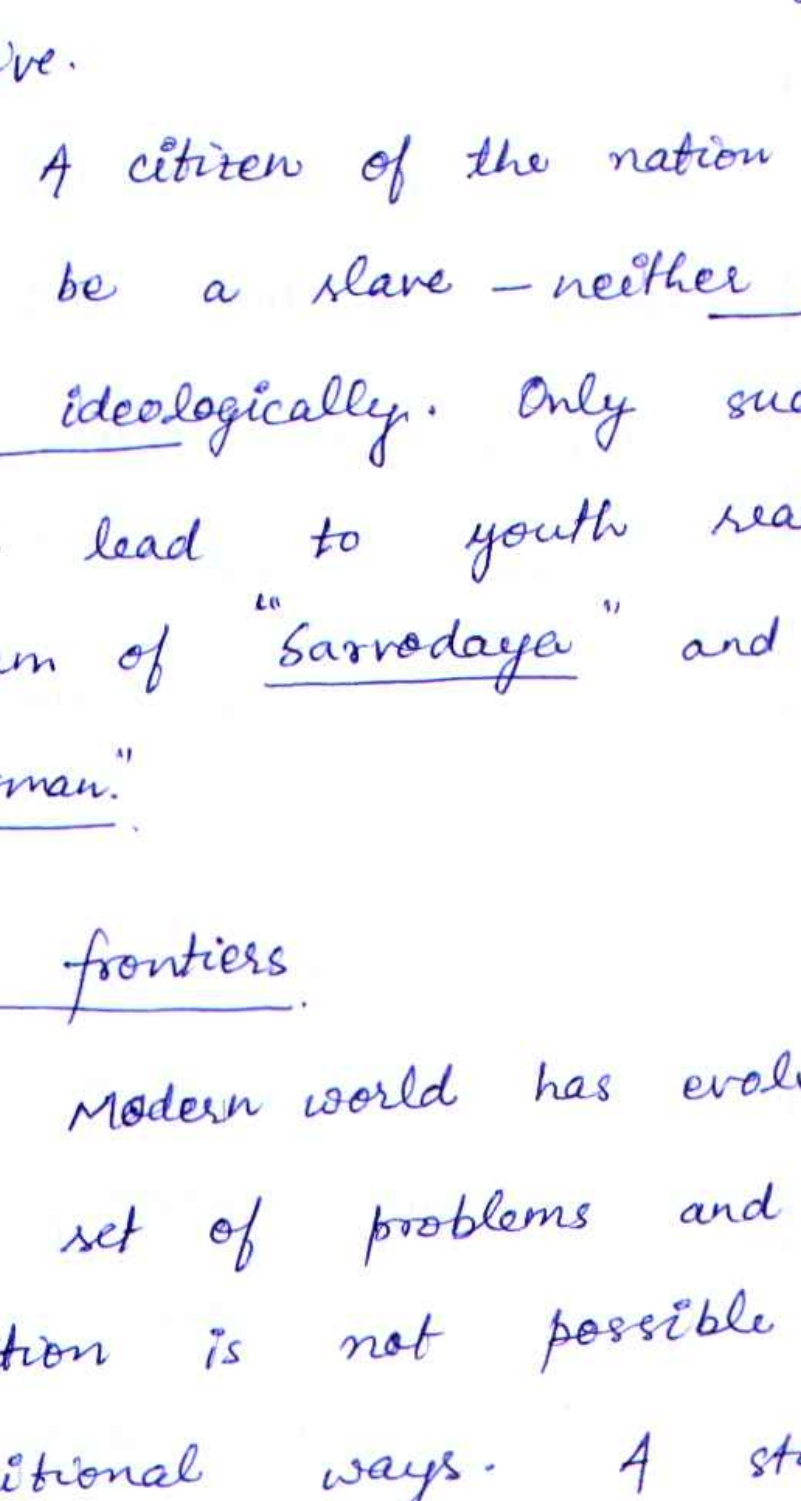 ive.
A citizen of the nation
be a slave – neither
ideologically. Only suc
lead to youth rea
em of "Sarvodaya" and
man."
frontiers.
Modern world has evol
set of problems and
tion is not possible
itional ways. A st